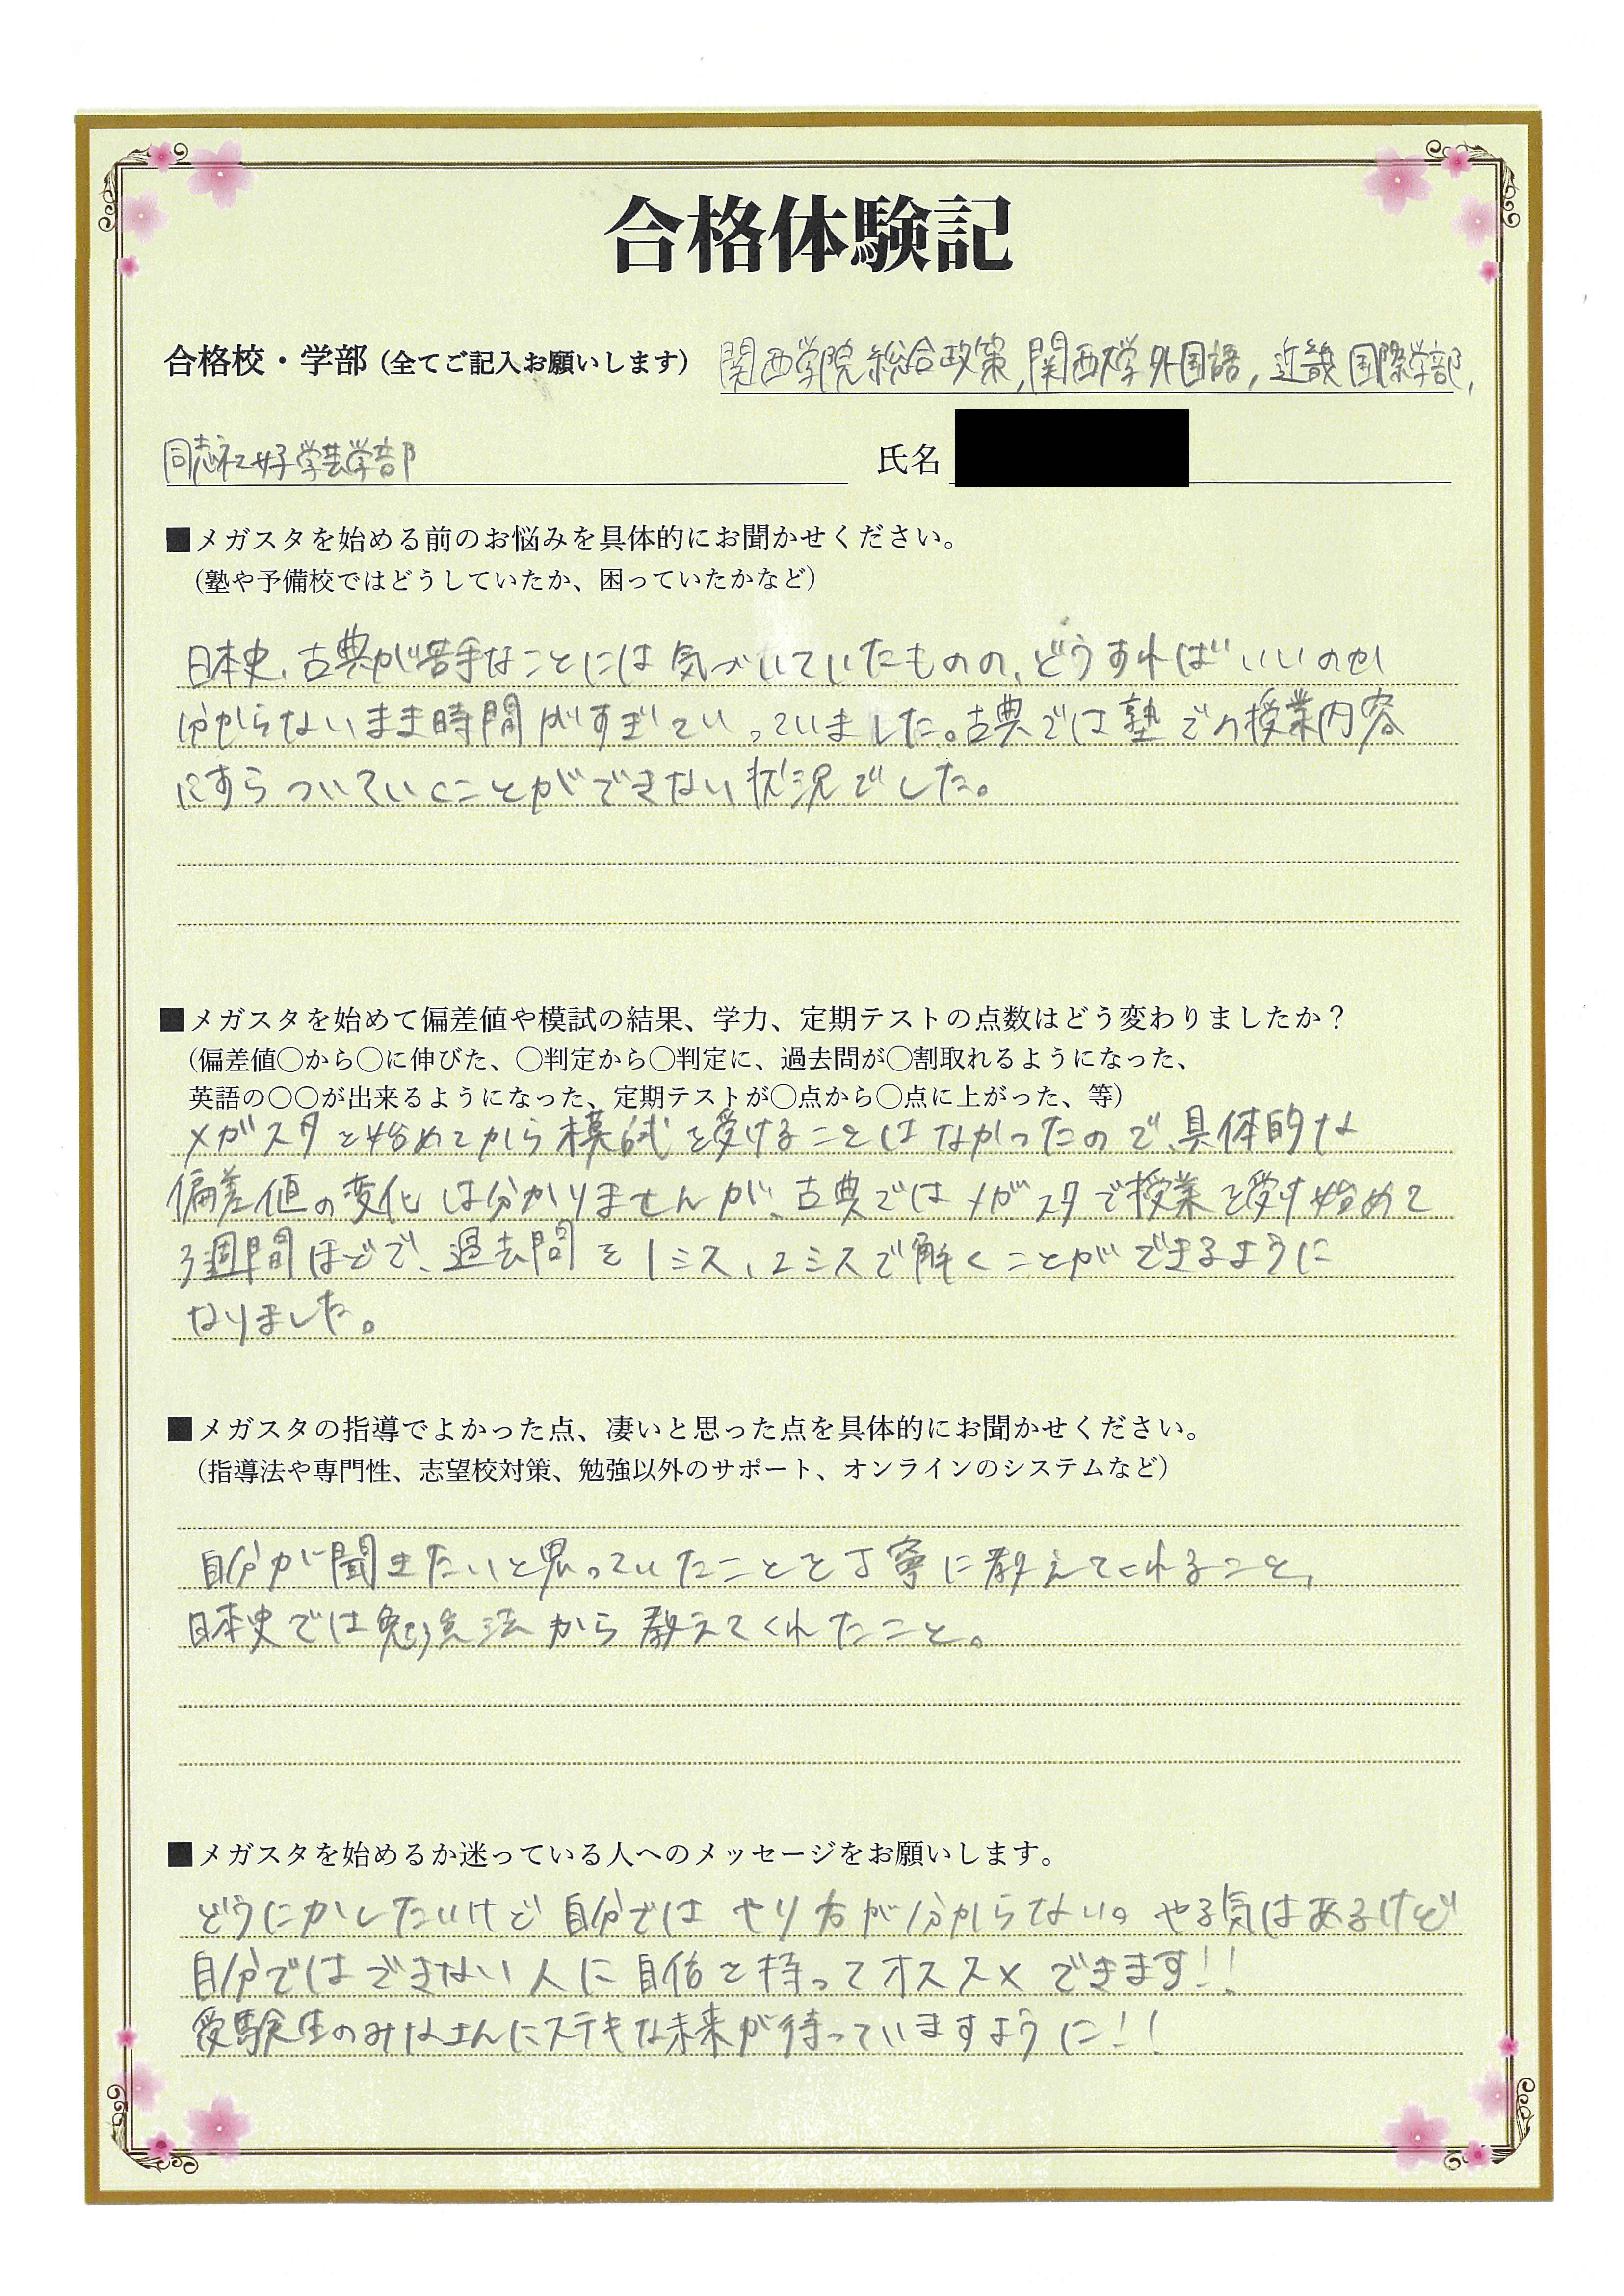 合格体験記
合格校・学部（全てご記入お願いします） 関西学院総合政策,関西大学外国語,近畿国際学部,
同志社女子学芸学部 氏名
■メガスタを始める前のお悩みを具体的にお聞かせください。
（塾や予備校ではどうしていたか、困っていたかなど）
日本史、古典が苦手なことには気づいていたものの、どうすればいいのか
分からないまま時間がすぎていっていました。古典では塾での授業内容
にすらついていくことができない状況でした。
■メガスタを始めて偏差値や模試の結果、学力、定期テストの点数はどう変わりましたか？
（偏差値〇から〇に伸びた、〇判定から〇判定に、過去問が〇割取れるようになった、
英語の〇〇が出来るようになった、定期テストが〇点から〇点に上がった、等）
メガスタを始めてから模試を受けることはなかったので、具体的な
偏差値の変化は分かりませんが、古典ではメガスタで授業を受け始めて
3週間ほどで、過去問を1ミス、2ミスで解くことができるように
なりました。
■メガスタの指導でよかった点、凄いと思った点を具体的にお聞かせください。
（指導法や専門性、志望校対策、勉強以外のサポート、オンラインのシステムなど）
自分が聞きたいと思っていたことを丁寧に教えてくれること、
日本史では勉強法から教えてくれたこと。
■メガスタを始めるか迷っている人へのメッセージをお願いします。
どうにかしたいけど自分ではやり方が分からない。やる気はあるけど
自分ではできない人に自信を持ってオススメできます!!
受験生のみなさんにステキな未来が待っていますように!!